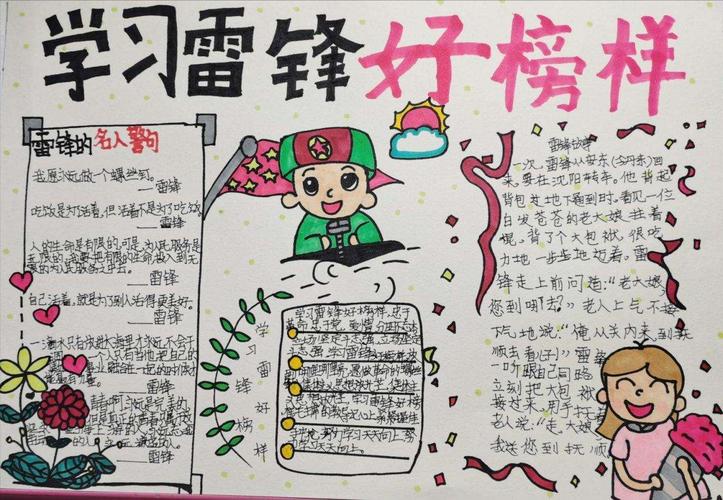 学习雷锋好榜样
雷锋的名人警句
我愿永远做一个螺丝钉。
——雷锋
吃饭是为了活着,但活着不是为了吃饭。
——雷锋
人的生命是有限的,可是,为人民服务是
无限的,我要把有限的生命投入到无
限的为人民服务之中去。
——雷锋
自己活着,就是为了别人过得更美好。
——雷锋
一滴水只有放进大海里才永远不会干
一个人只有当他把自己
——雷锋
——雷锋
学习雷锋好榜样
学习雷锋好榜样,忠于
革命忠于党,爱憎分明不忘
本,立场坚定斗志强,立场坚定
斗志强,学习雷锋好榜样
雷锋故事
一次,雷锋从安东(今丹东)回
来,要在沈阳转车。他背起
背包过地下道时,看见一位
白发苍苍的老大娘,拄着
棍,背了个大包袱,很吃
力地一步步地迈着,雷
锋走上前问道:“老大娘
您到哪去?”老人上气不接
下气地说:“俺从关内来,到抚
顺去看儿子!”雷锋
一听跟自己同路,
立刻把大包袱
接过来,用手扶着
老人说:“走,大娘,
我送您到抚顺